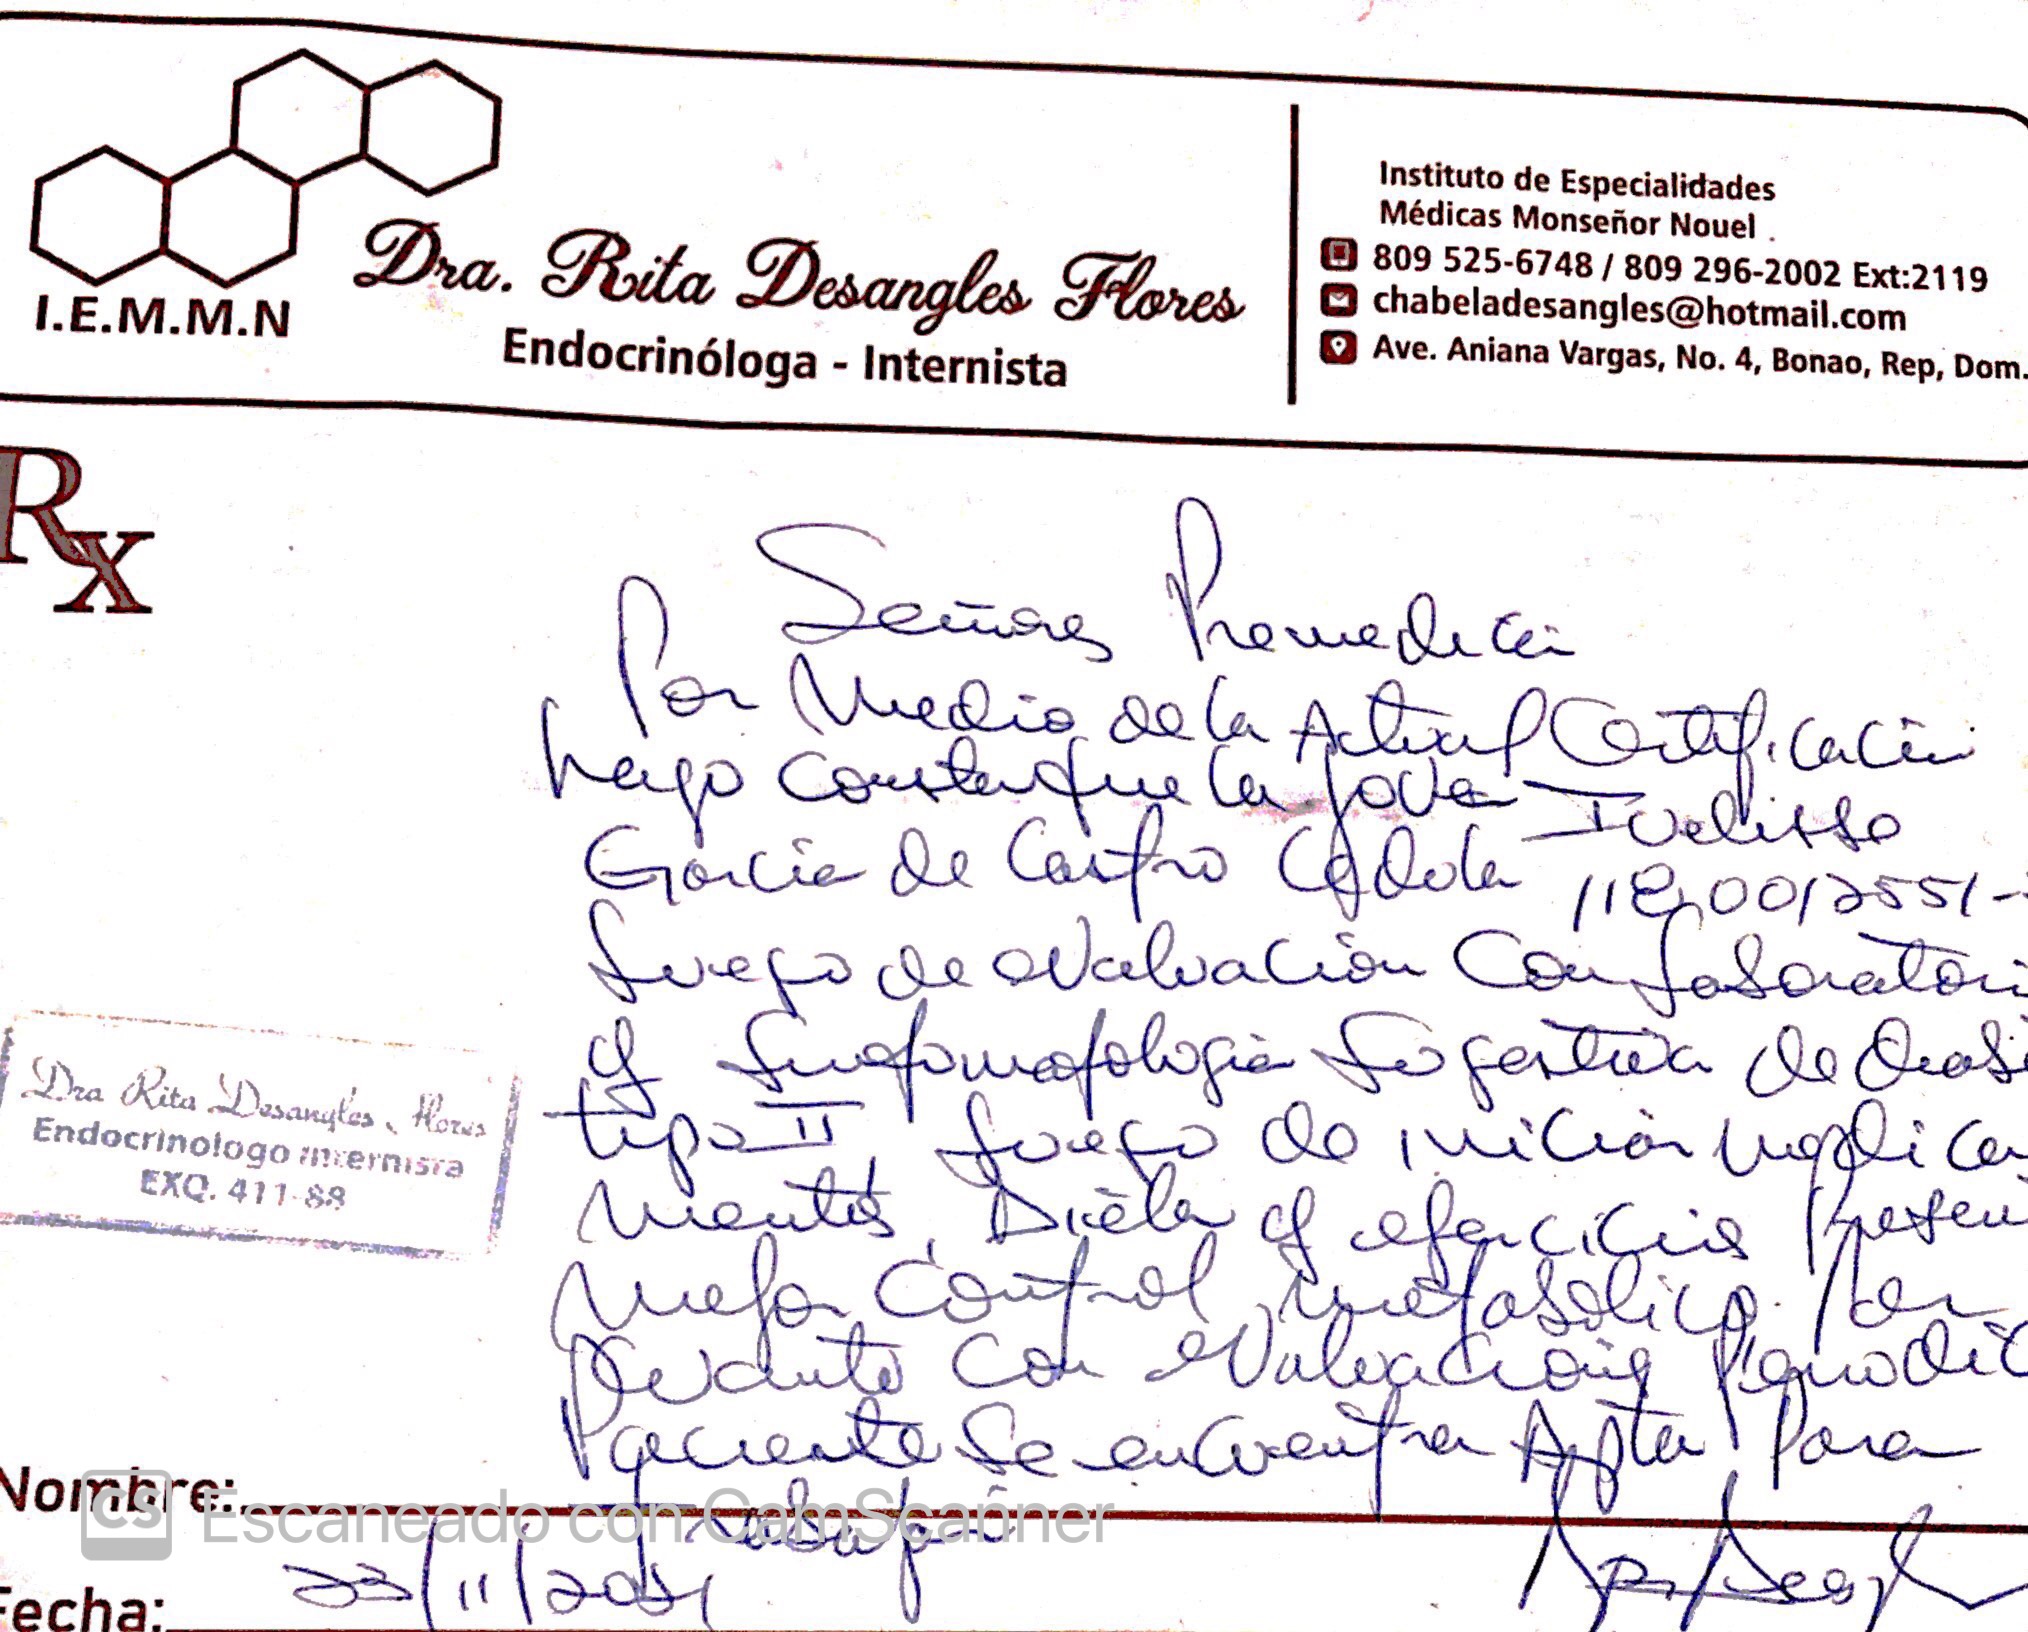 I.E.M.M.N
Dra. Rita Desangles Flores
Endocrinóloga - Internista
Instituto de Especialidades
Médicas Monseñor Nouel
809 525-6748 / 809 296-2002 Ext:2119
chabeladesangles@hotmail.com
Ave. Aniana Vargas, No. 4, Bonao, Rep, Dom.
Rx
Señores
Por Medio de la Actual Certificación
hago constar que la Joven Ivelisse
García de Castro Cédula
Luego de evaluación con Laboratori
y Sintomatología Sugestiva de
tipo II, Luego de iniciar medica
mentos, Dieta y ejercicios
Mejor Control metabólico.
con evaluaciones
Paciente se encuentra Apta Para
Dra Rita Desangles Flores
Endocrinologo Internista
EXQ. 411-88
Nombre:
Escaneado con CamScanner
Fecha: 23/11/2021